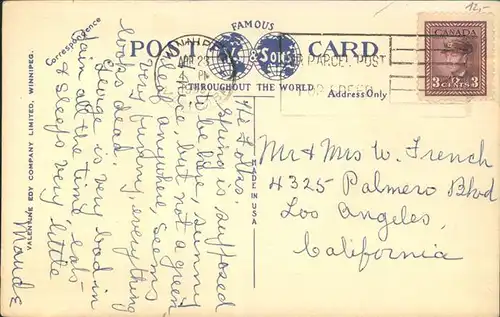 12,-
FAMOUS
POST & SONS CARD.
THROUGHOUT THE WORLD
Correspondence
Address Only
CANADA
3 CENTS 3
WINNIPEG
APR 23
PM
AIR PARCEL POST
VALENTINE EDY COMPANY LIMITED, WINNIPEG.
MADE IN USA
Folks.
Spring is supposed
to be here, sunny
nice, but not a green
leaf anywhere, seems
very funny, everything
looks dead.
George is very bad in
pain all the time, eats
& sleeps very little
Maude
Mr & Mrs W. French
4325 Palmero Blvd
Los Angeles,
California